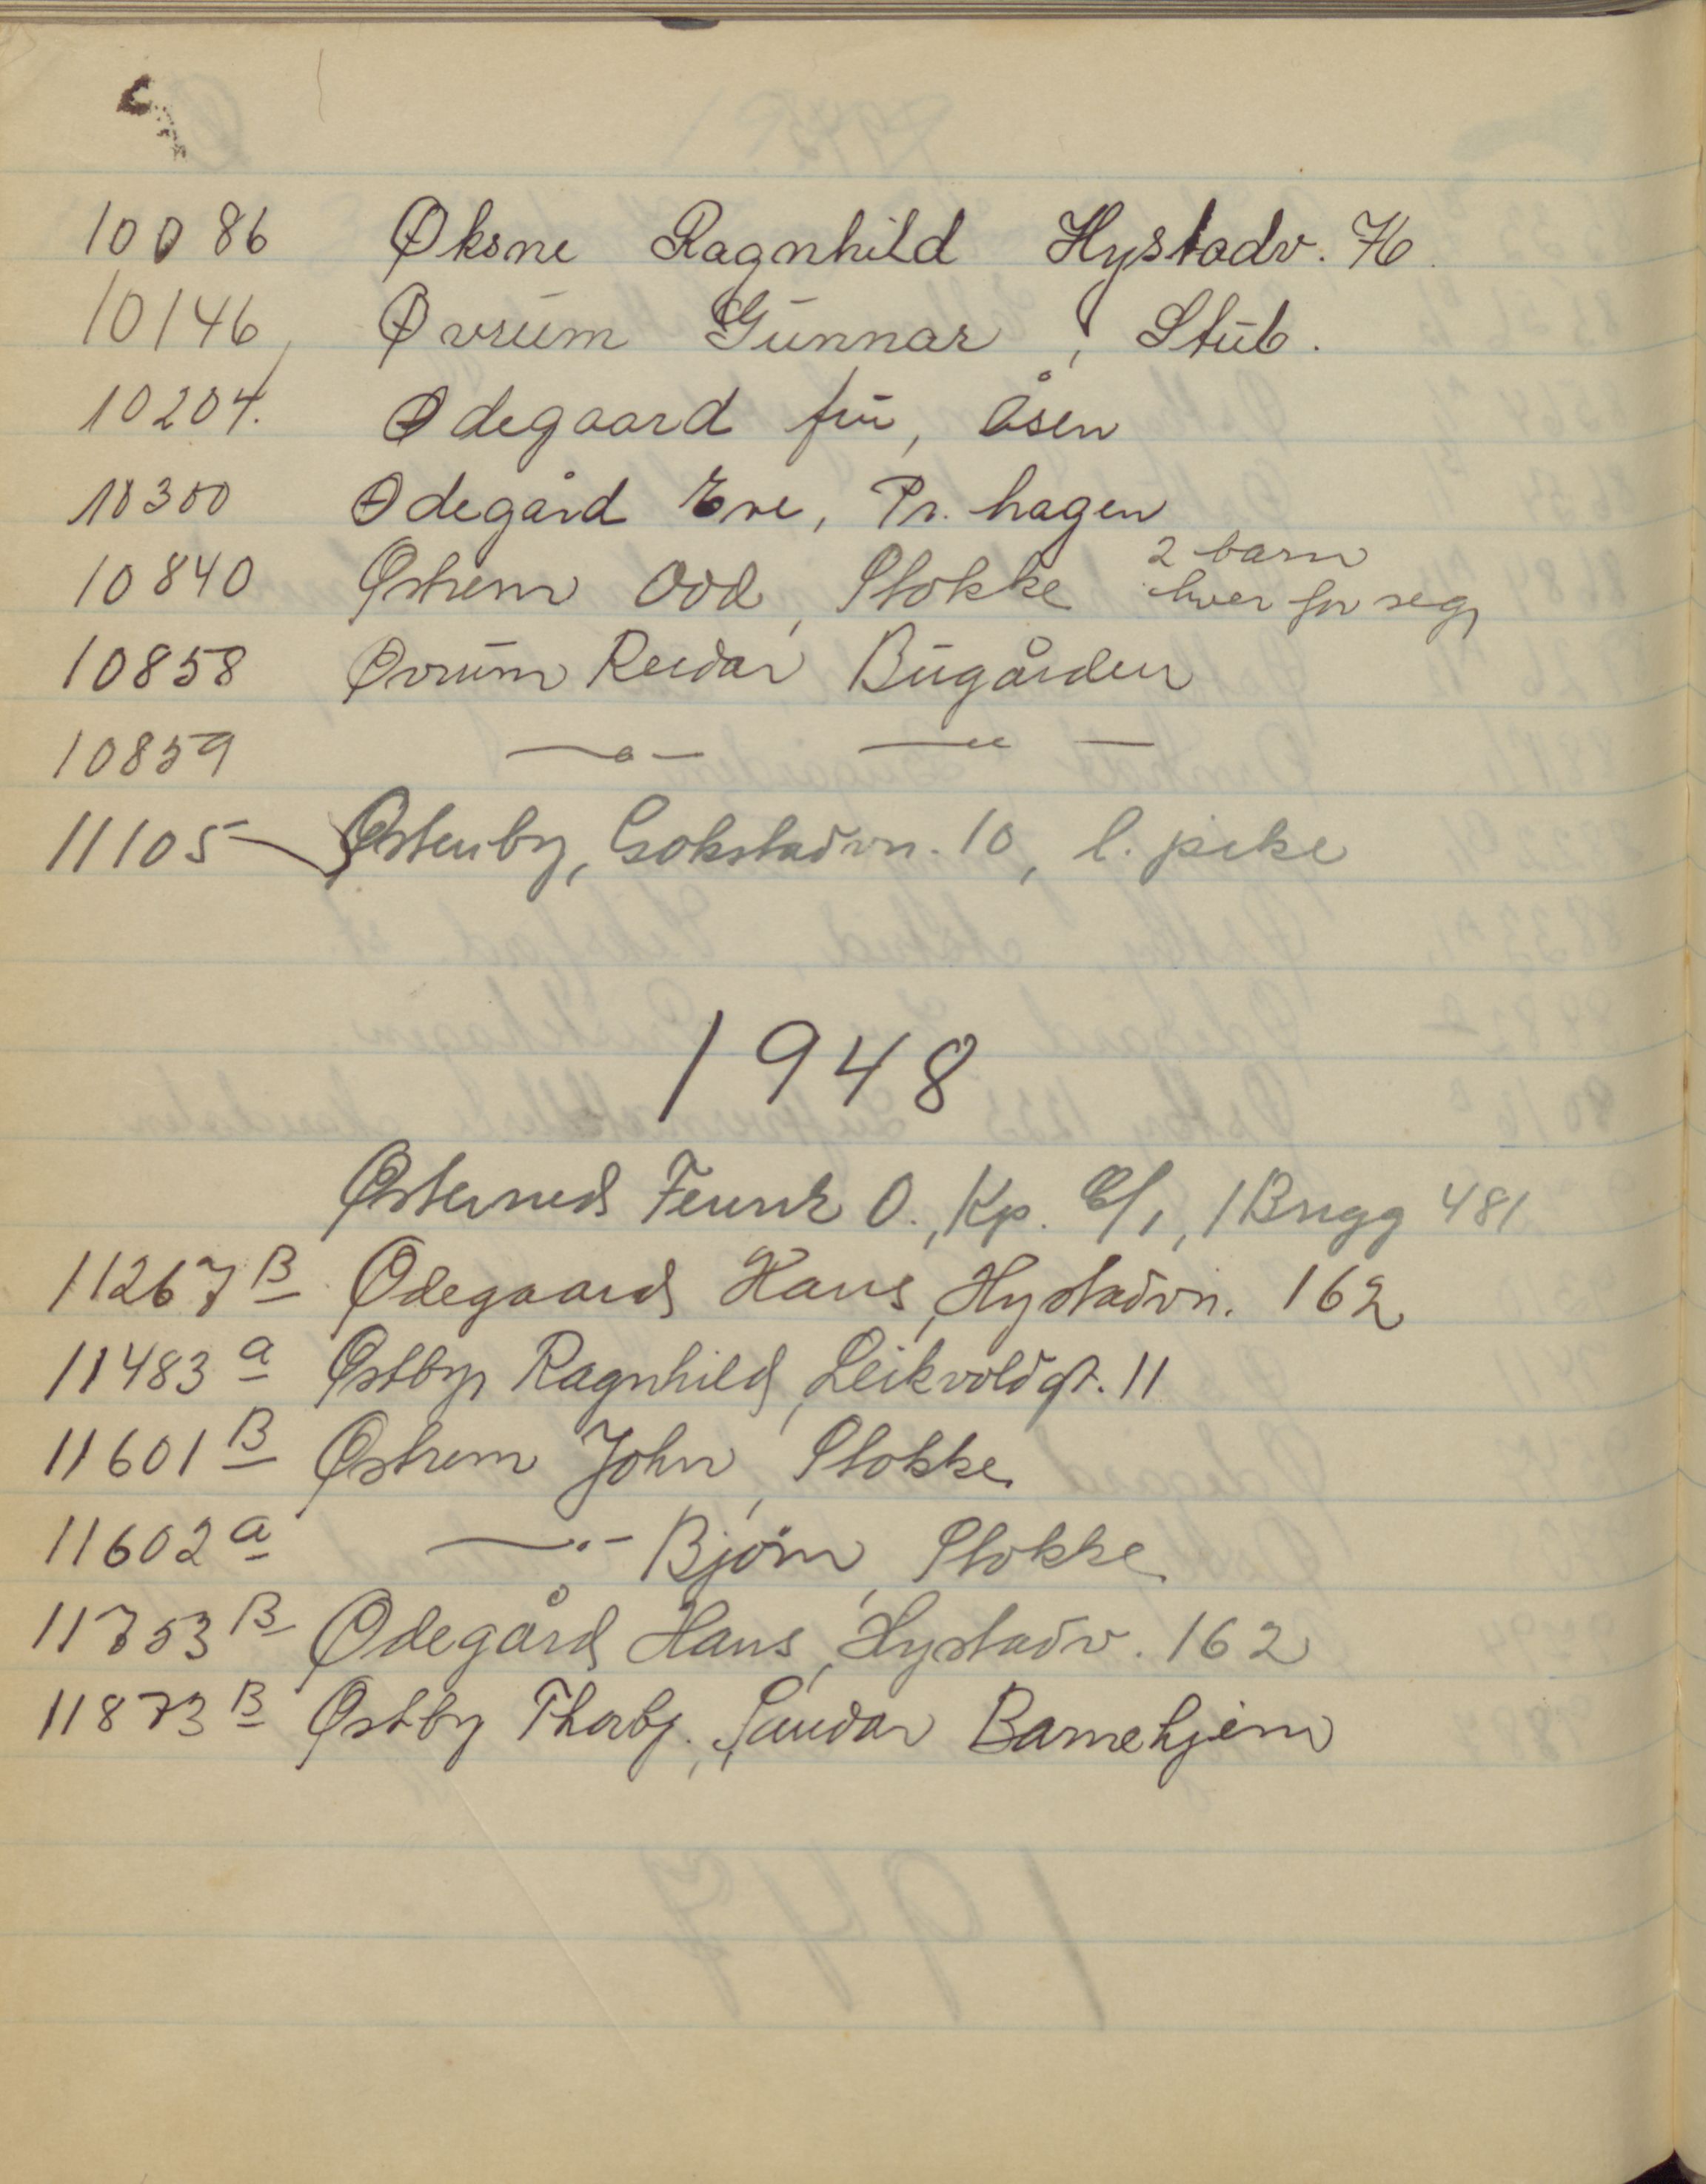 10086 Øksne Ragnhild Hystadv. 76.
10146, Øvrum Gunnar, Stub.
10204. Ødegaard fru, Åsen
10300 Ødegård Eve, Pr. hagen
10840 Østrem Odd, Stokke 2 barn hver for seg
10858 Øvrum Reidar Bugården
10859 —〃— —〃—
11105 Østenby, Gokstadvn. 10, l. pike
1948
Østerned O., Kp. 1 Brigg 481
11267 B Ødegaard Hans, Hystadvn. 162
11483 a Østby Ragnhild, Leikvoldgt. 11
11601 B Østrem John, Stokke
11602 a —〃— Bjørn, Stokke
11753 B Ødegård Hans, Hystadv. 162
11873 B Østby Thorbj., Sandar Barnehjem